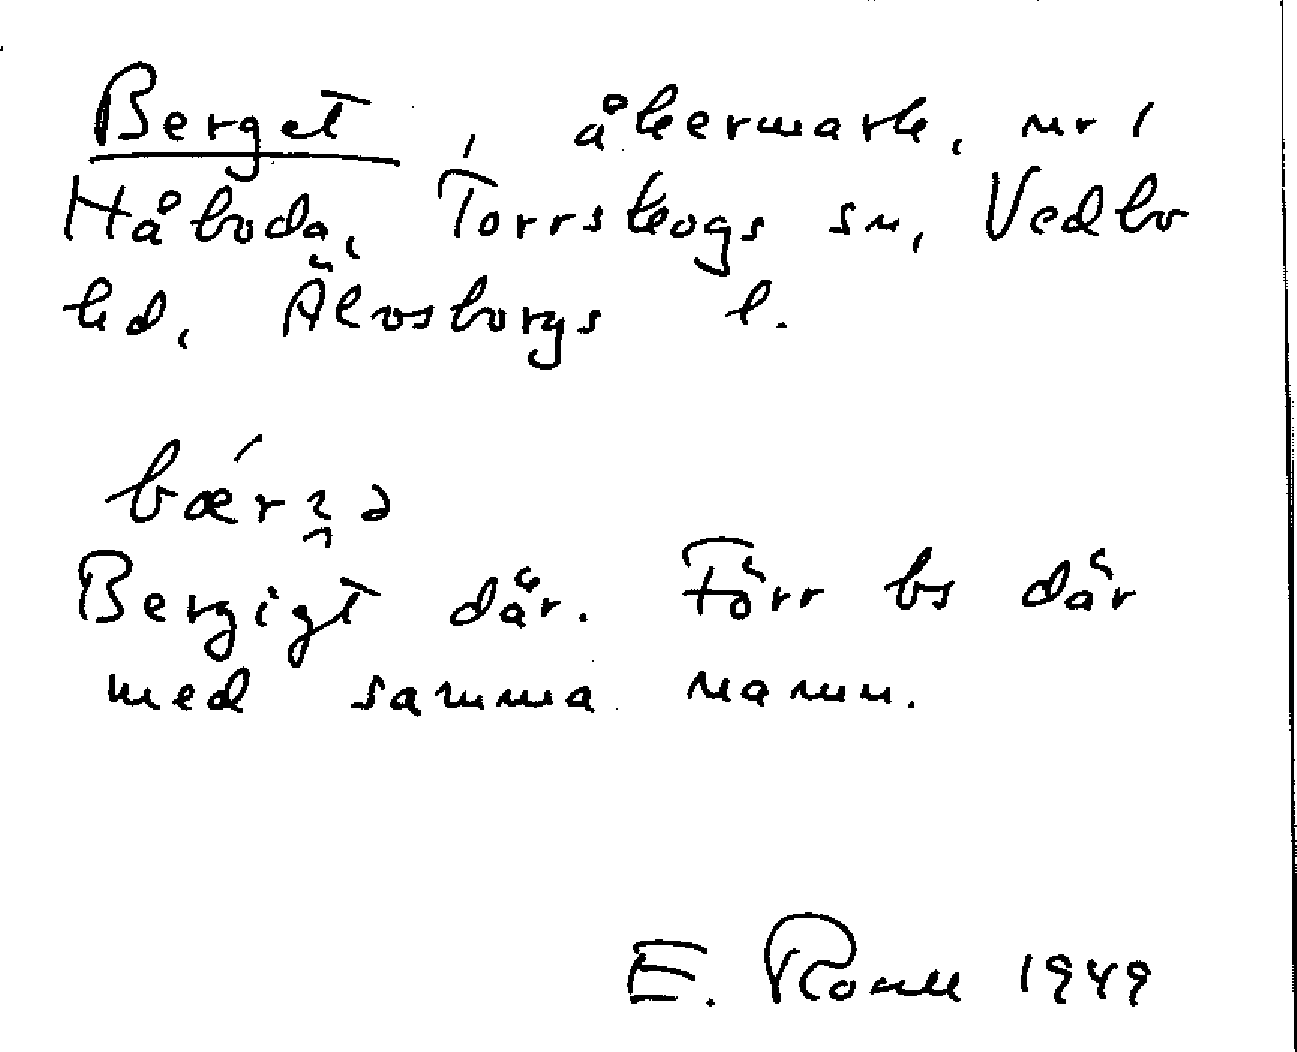 Berget, åkermark, nr 1
Håboda, Torrskogs sn, Vedbo
hd, Älvsborgs l.
bær
Bergigt där. Förr bs där
med samma namn.
E. 1949